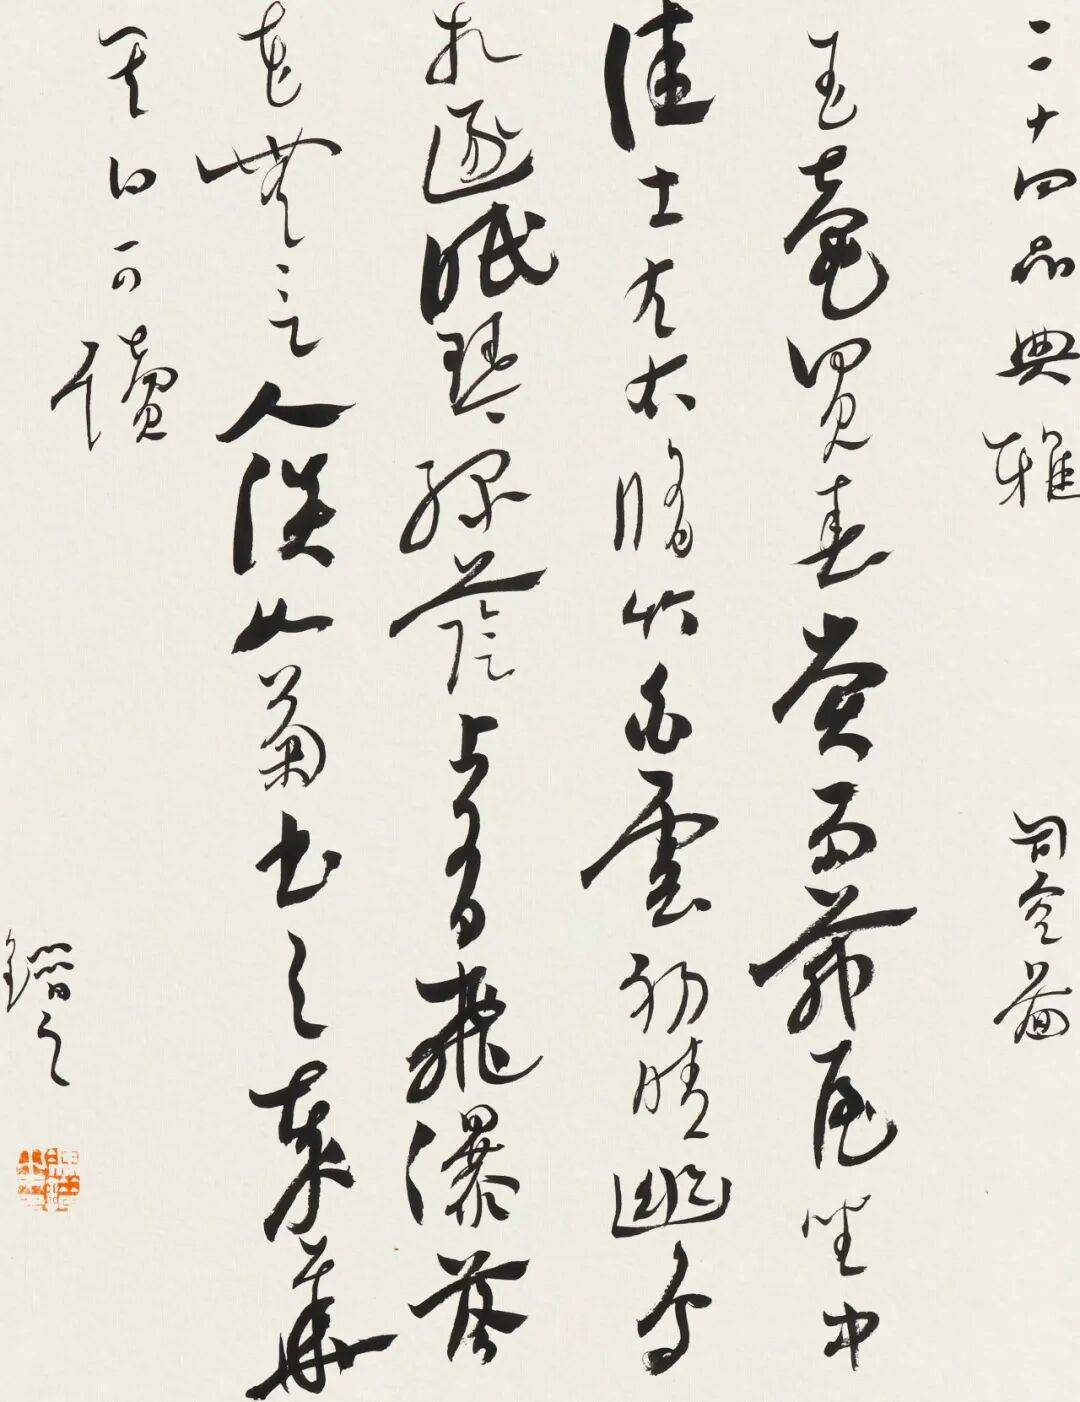 二十四品典雅 司空圖
玉壺買春賞雨茆屋坐中
佳士左右脩竹白雲初晴幽鳥
相逐眠琴綠蔭上有飛瀑落
花無言人淡如菊書之歲華
其曰可讀
之